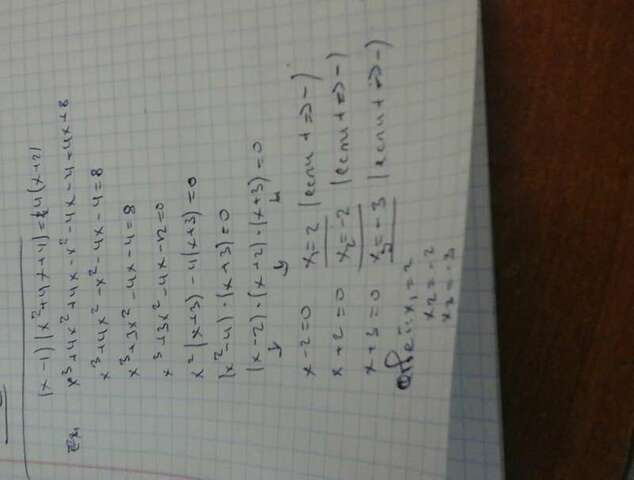 (x-1)(x²+4x+4)=4(x+2)
x³+4x²+4x-x²-4x-4=4x+8
x³+4x²-x²-4x-4=8
x³+3x²-4x-4=8
x³+3x²-4x-12=0
x²(x+3)-4(x+3)=0
(x²-4)·(x+3)=0
(x-2)·(x+2)·(x+3)=0
x-2=0 x₁=2 (если + => -)
x+2=0 x₂=-2 (если + => -)
x+3=0 x₃=-3 (если + => -)
Ответ: x₁=2
x₂=-2
x₃=-3